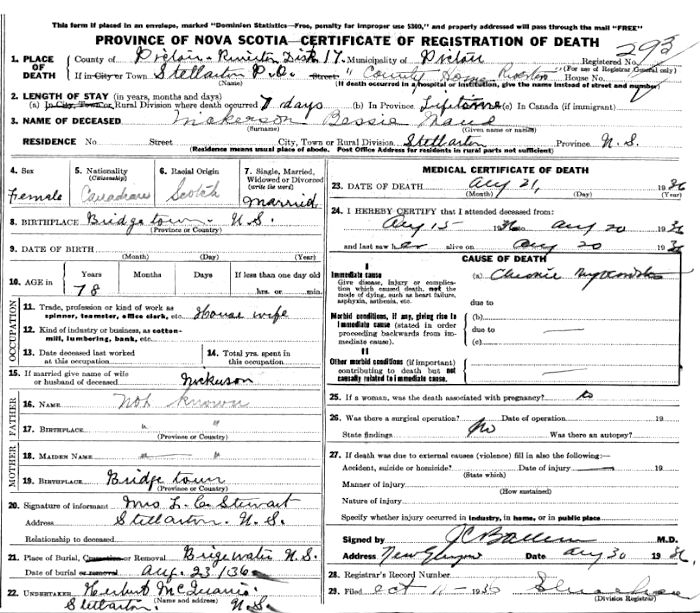 This form if placed in an envelope, marked "Dominion Statistics—Free, penalty for improper use $300," and properly addressed will pass through the mail "FREE"
PROVINCE OF NOVA SCOTIA—CERTIFICATE OF REGISTRATION OF DEATH
1. PLACE OF DEATH
County of Pictou - Riverton Dist 17. Municipality of Pictou
Registered No. 293
(For use of Registrar General only)
If in City or Town Stellarton P.O. Street "County Home Riverton House No.
(Name) (If death occurred in a hospital or institution, give the name instead of street and number)
2. LENGTH OF STAY (in years, months and days)
(a) In City, Town or Rural Division where death occurred 7 days (b) In Province Lifetime (c) In Canada (if immigrant)
3. NAME OF DECEASED Nickerson Bessie Maud
(Surname) (Given name or names)
RESIDENCE No. Street City, Town or Rural Division Stellarton Province N.S.
(Residence means usual place of abode. Post Office Address for residents in rural parts not sufficient)
4. Sex
Female
5. Nationality
(Citizenship)
Canadian
6. Racial Origin
Scotch
7. Single, Married, Widowed or Divorced
(write the word)
Married
8. BIRTHPLACE Bridgetown. N.S.
(Province or Country)
9. DATE OF BIRTH
(Month) (Day) (Year)
10. AGE in
Years Months Days If less than one day old
78 hrs. or min.
OCCUPATION
11. Trade, profession or kind of work as spinner, teamster, office clerk, etc. House wife
12. Kind of industry or business, as cotton-mill, lumbering, bank, etc.
13. Date deceased last worked at this occupation
14. Total yrs. spent in this occupation
15. If married give name of wife or husband of deceased Nickerson
FATHER
16. NAME Not known
17. BIRTHPLACE " "
(Province or Country)
MOTHER
18. MAIDEN NAME " "
19. BIRTHPLACE Bridgetown
(Province or Country)
20. Signature of informant Mrs L. C. Stewart
Address Stellarton. N.S.
Relationship to deceased
21. Place of Burial, Cremation or Removal Brigewater N.S.
Date of burial or removal Aug. 23/36
22. UNDERTAKER Herbert McQuarrie
(Name and address)
Stellarton. N.S.
MEDICAL CERTIFICATE OF DEATH
23. DATE OF DEATH Aug 21, 1936
(Month) (Day) (Year)
24. I HEREBY CERTIFY that I attended deceased from:
Aug 15 1936 to Aug 20 1936
and last saw her alive on Aug 20 1936
CAUSE OF DEATH
I
Immediate cause
Give disease, injury or complication which caused death, not the mode of dying, such as heart failure, asphyxia, asthenia, etc.
(a) Chronic Myocarditis
due to
Morbid conditions, if any, giving rise to immediate cause (stated in order proceeding backwards from immediate cause).
(b)
due to
(c)
II
Other morbid conditions (if important) contributing to death but not causally related to immediate cause.
25. If a woman, was the death associated with pregnancy?
26. Was there a surgical operation? No Date of operation 19
State findings Was there an autopsy?
27. If death was due to external causes (violence) fill in also the following:—
Accident, suicide or homicide? Date of injury 19
(State which)
Manner of injury
(How sustained)
Nature of injury
Specify whether injury occurred in industry, in home, or in public place
Signed by M.D.
Address New Glasgow Date Aug 30 1936
28. Registrar's Record Number
29. Filed Oct 11 - 1936
(Division Registrar)